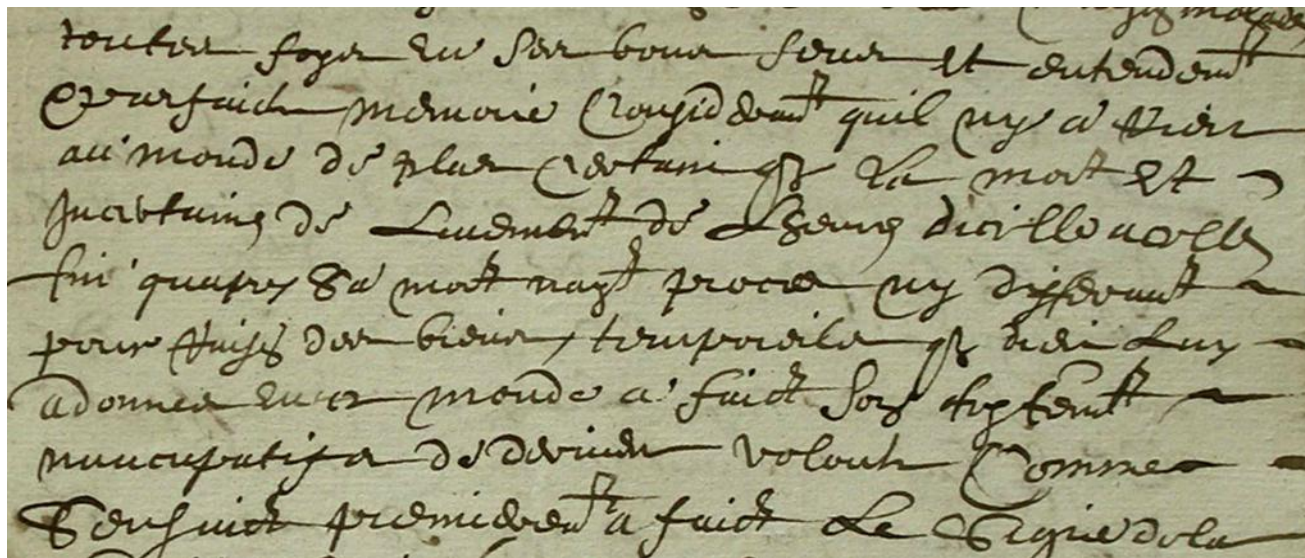 malade
toutes foys en ses bons sens et entendemt
& parfaicte memoire Considerant quil ny a Rien
au monde de plus Certain q la mort et
Incertaine de Lavenemt de Lheure dicelle
affin quapres sa mort nayt proces ny differant
pour Raison des biens temporeils q dieu Luy
a donnes en ce monde a faict son testemt
nuncupatif et de derniere volonte Comme
Sensuict premieremt a faict Le Signe de la